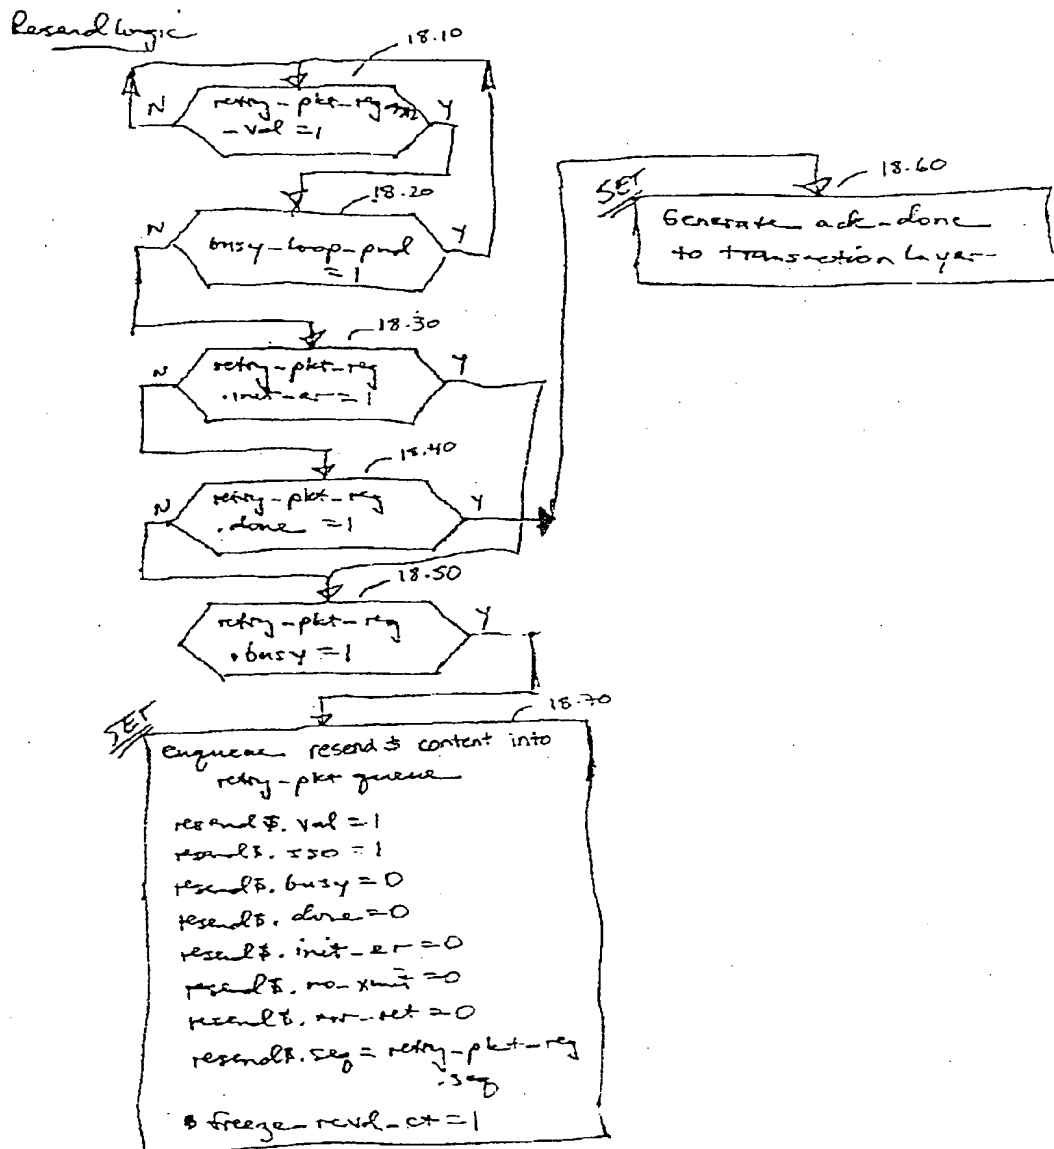 Resend Logic
18.10
N
retry-pkt-reg
Y
-val = 1
18.20
N
busy-loop-pnd
Y
= 1
18.30
N
retry-pkt-reg
Y
.init-er = 1
18.40
N
retry-pkt-reg
Y
.done = 1
18.50
retry-pkt-reg
Y
.busy = 1
SET
18.60
Generate ack-done
to transaction layer
SET
18.70
enqueue resend$ content into
retry-pkt queue
resend$. val = 1
resend$. sso = 1
resend$. busy = 0
resend$. done = 0
resend$. init_er = 0
resend$. no_xmit = 0
resend$. = 0
resend$.seq = retry-pkt-reg
.seq
freeze_rcvd_ct = 1